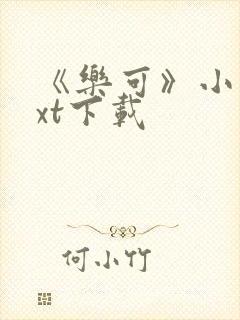 《樂可》小
xt下載
何小竹